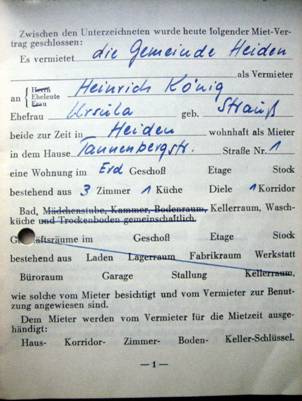 Zwischen den Unterzeichneten wurde heute folgender Miet-Ver-
trag geschlossen:
Es vermietet die Gemeinde Heiden
als Vermieter
an { Herrn Eheleute Frau Heinrich König
Ehefrau Ursula geb. Strauß
beide zur Zeit in Heiden wohnhaft als Mieter
in dem Hause Tannenbergstr. Straße Nr. 1
eine Wohnung im Erd Geschoß Etage Stock
bestehend aus 3 Zimmer 1 Küche Diele 1 Korridor
Bad, Mädchenstube, Kammer, Bodenraum, Kellerraum, Wasch-
küche und Trockenboden gemeinschaftlich.
Geschäftsräume im Geschoß Etage Stock
bestehend aus Laden Lagerraum Fabrikraum Werkstatt
Büroraum Garage Stallung Kellerraum,
wie solche vom Mieter besichtigt und vom Vermieter zur Benut-
zung angewiesen sind.
Dem Mieter werden vom Vermieter für die Mietzeit ausge-
händigt:
Haus- Korridor- Zimmer- Boden- Keller-Schlüssel.
— 1 —